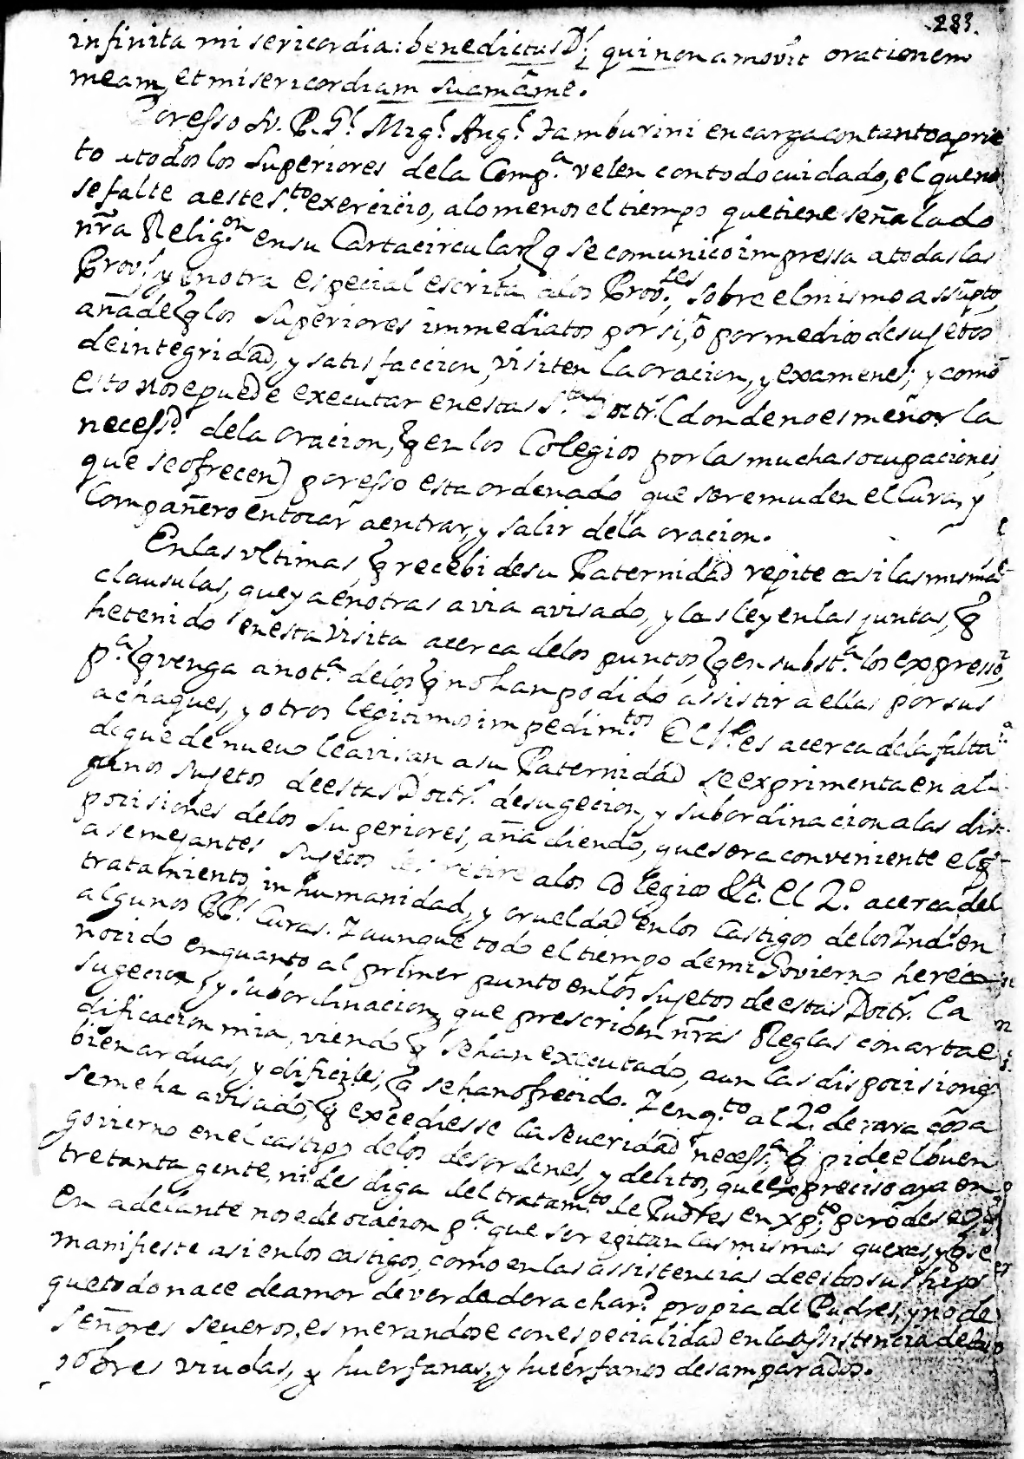 283.
infinita misericordia: benedictus Ds. qui non amovit orationem
meam, et misericordiam suam â me.
Por esso N. P. Gl. Migl. Angl. Tamburini encarga con tanto aprie
to a todos los Superiores de la Compa. velen con todo cuidado, el que no
se falte a este S.to exercicio, a lo menos el tiempo que tiene señalado
nr̃a Religon. en su Carta circular, q̃ se comunicò impressa a todas las
Provs. y en otra especial escrita a los Prov.les sobre el mismo assũpto,
añade q̃ los Superiores immediatos por si, ô por medio de sujetos
de integridad, y satisfaccion, visiten la oracion, y examenes; y como
esto no se puede executar en estas S.tas Doctrs. (donde no es menor la
necessd. de la oracion, q̃ en los Colegios por las muchas ocupaciones
que se ofrecen) por esso esta ordenado que se remuden el Cura, y
Compañero en tocar a entrar, y salir de la oracion.
En las ultimas, q̃ recebi de su Paternidad repite casi las mismas
clausulas, que ya en otras avia avisado, y las ley en las juntas, q̃
he tenido en esta Visita acerca de los puntos, q̃ en substa. los expresso,
pa. q̃ venga a nota. de los q̃ no han podido assistir a ellas por sus
achaques, y otros legitimos impedim.tos El 1o. es acerca de la falta
de que de nuevo le avisan a su Paternidad se exprimenta en al-
gunos sujetos de estas Doctrs. de sugecion, y subordinacion a las dis-
posisiones de los Superiores, añadiendo, que sera conveniente el q̃
a semejantes sujetos se retire a los Colegios &a. El 2o. acerca del
tratamiento, inhumanidad, y crueldad en los Castigos de los Inds. en
algunos PPs. Curas. I aunque todo el tiempo de mi Govierno he reco
nocido en quanto al primer punto en los sujetos de estas Doctrs. la
sugecion, y subordinacion, que prescriben nr̃as Reglas con arta e
dificacion mia, viendo q̃ se han executado, aun las disposisiones
bien arduas, y dificiles, q̃ se han ofrecido. I en q.to al 2o. de rara cosa
se me ha avisado, q̃ excediesse la severidad necessa. q̃ pide el buen
govierno en el castigo de los desordenes, y delitos, que es preciso aya en
tre tanta gente, ni desdiga del tratam.to de Padres en Xp.to pero deseo, q̃
en adelante no se de ocacion pa. que se repitan las mismas quexas, y q̃ se
manifieste asi en los castigos, como en las assistencias de estos sus hijos
que todo nace de amor de verdadera chard. propia de Padres, y no de
Señores severos, esmerandose con especialidad en la assistencia de los
pobres viudas, y huerfanas, y huerfanos desamparados.